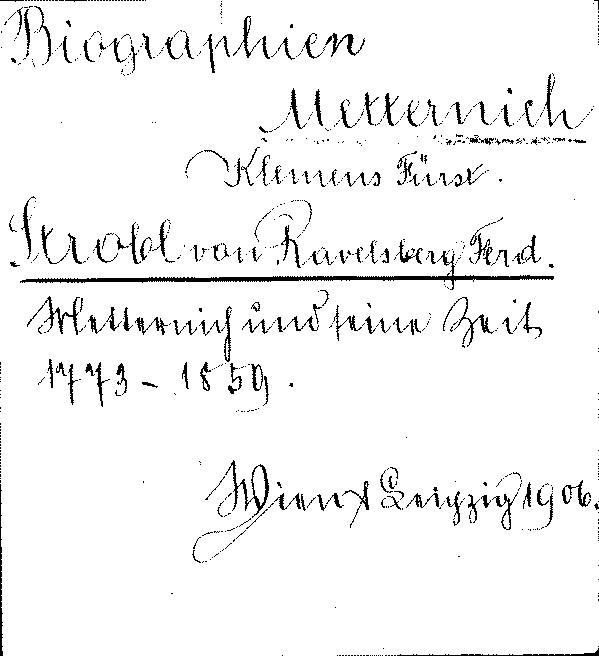 Biographien
Metternich
Klemens Fürst.
Strobl von Ravelsberg Ferd.
Metternich und seine Zeit
1773 - 1859.
Wien & Leipzig 1906.